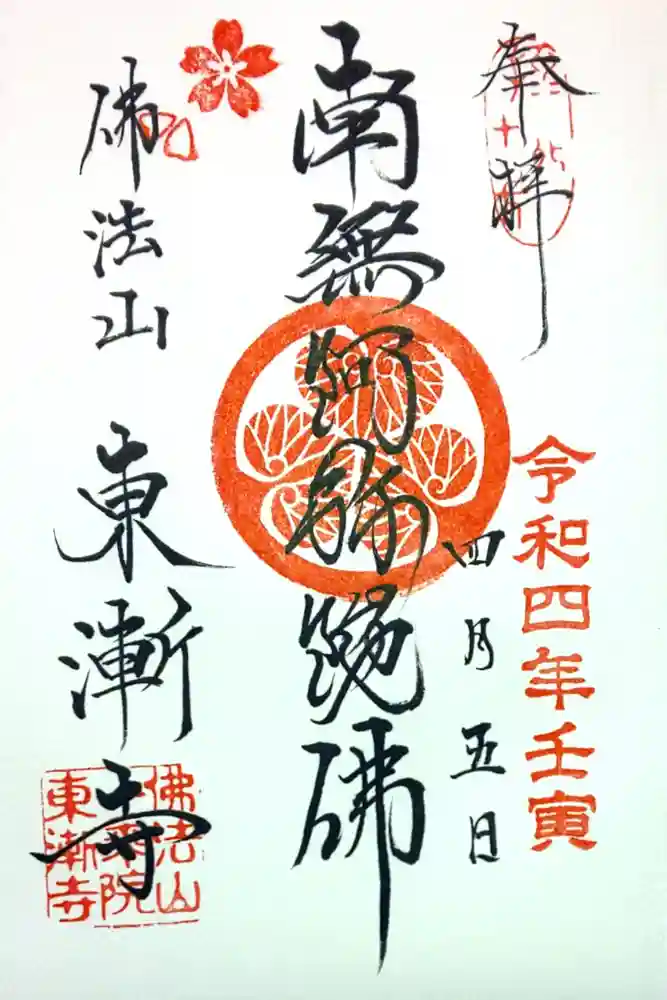 奉拝
令和四年壬寅
四月五日
南無阿弥陀佛
佛法山
東漸寺
佛法山
院
東漸寺